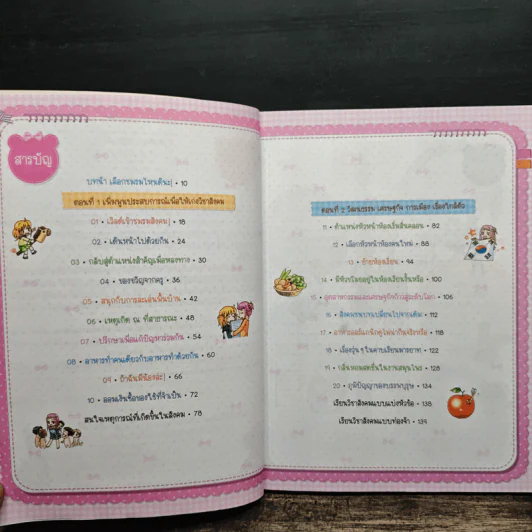 สารบัญ
บทนำ เลือกชมรมไหนดีนะ • 10
ตอนที่ 1 เพิ่มพูนประสบการณ์เพื่อให้เก่งวิชาสังคม
01 • เวิลด์เข้าชมรมสังคม • 18
02 • เดินหน้าไปด้วยกัน • 24
03 • กลับสู่ตำแหน่งสำคัญเพื่อหลงทาง • 30
04 • ของขวัญจากครู • 36
05 • สนุกกับการละเล่นพื้นบ้าน • 42
06 • เหตุเกิด ณ ที่สาธารณะ • 48
07 • ปรึกษาเพื่อแก้ปัญหาร่วมกัน • 54
08 • อาหารทำคนเดียวกับอาหารทำด้วยกัน • 60
09 • ถ้าฉันมีพี่น้องล่ะ • 66
10 • ออมเงินซื้อของใช้ที่จำเป็น • 72
สนใจเหตุการณ์ที่เกิดขึ้นในสังคม • 78
ตอนที่ 2 วัฒนธรรม เศรษฐกิจ การเมือง เรื่องใกล้ตัว
11 • ตำแหน่งหัวหน้าห้องเริ่มสั่นคลอน • 82
12 • เลือกหัวหน้าห้องคนใหม่ • 88
13 • ย้ายห้องเรียน • 94
14 • มีหัวขโมยอยู่ในห้องเรียนงั้นหรือ • 100
15 • อุตสาหกรรมและเศรษฐกิจก้าวสู่ระดับโลก • 106
16 • สังคมชนบทเปลี่ยนไปจากเดิม • 112
17 • อาหารออร์แกนิกดูไม่น่ากินจริงหรือ • 118
18 • เรื่องวุ่นๆ ในคาบเรียนมารยาท • 122
19 • 128
20 • ภูมิปัญญาของบรรพบุรุษ • 134
เรียนวิชาสังคมแบบแบ่งหัวข้อ • 138
เรียนวิชาสังคมแบบท่องจำ • 139